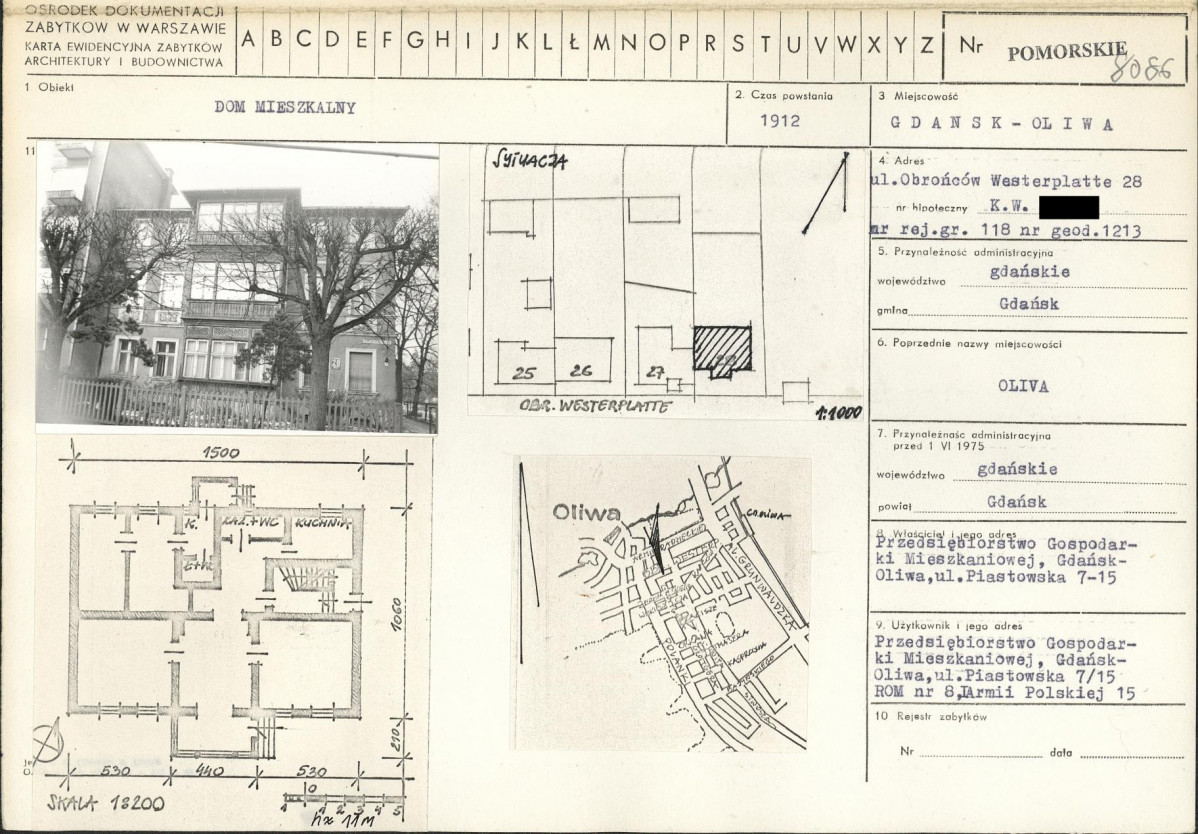 OŚRODEK DOKUMENTACJI
ZABYTKÓW W WARSZAWIE
KARTA EWIDENCYJNA ZABYTKÓW
ARCHITEKTURY I BUDOWNICTWA
A B C D E F G H I J K L Ł M N O P R S T U V W X Y Z
Nr POMORSKIE
8086
1 Obiekt
DOM MIESZKALNY
2. Czas powstania
1912
3 Miejscowość
GDAŃSK-OLIWA
11
SYTUACJA
25 26 27 28
OBR. WESTERPLATTE
1:1000
4. Adres
ul.Obrońców Westerplatte 28
nr hipoteczny K.W.
nr rej.gr. 118 nr geod.1213
5. Przynależność administracyjna
województwo gdańskie
gmina Gdańsk
6. Poprzednie nazwy miejscowości
OLIVA
7. Przynależność administracyjna
przed 1 VI 1975
województwo gdańskie
powiat Gdańsk
8. Właściciel i jego adres
Przedsiębiorstwo Gospodar-
ki Mieszkaniowej, Gdańsk-
Oliwa,ul.Piastowska 7-15
9. Użytkownik i jego adres
Przedsiębiorstwo Gospodar-
ki Mieszkaniowej, Gdańsk-
Oliwa,ul.Piastowska 7/15
ROM nr 8, Armii Polskiej 15
10 Rejestr zabytków
Nr data
1500
K. ŁAZ.+WC KUCHNIA
1060
210
530 440 530
SKALA 1:200
0
1 1 2 3 4 5
h≈ 11m
Oliwa
AL. GRUNWALDZKA
POLANKI
KASPROWICZA